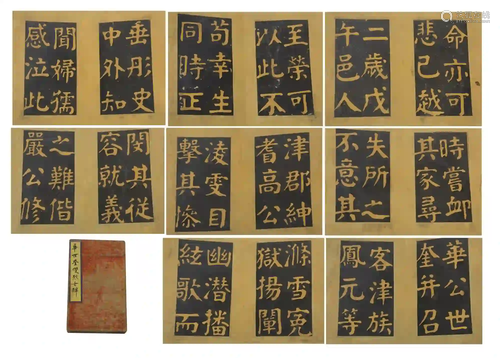 命亦可
悲已越
二歲戊
午邑人
至榮可
以此不
苟幸生
同時正
垂彤史
中外知
聞婦孺
感泣此
時嘗卹
其家尋
失所之
不意其
津郡紳
耆高公
凌雯目
擊其慘
閔其從
容就義
之難偕
嚴公修
華公世
奎并召
客津族
鳳元等
滌雪冤
獄揚闡
幽潛播
絃歌而
華世奎雙烈女碑